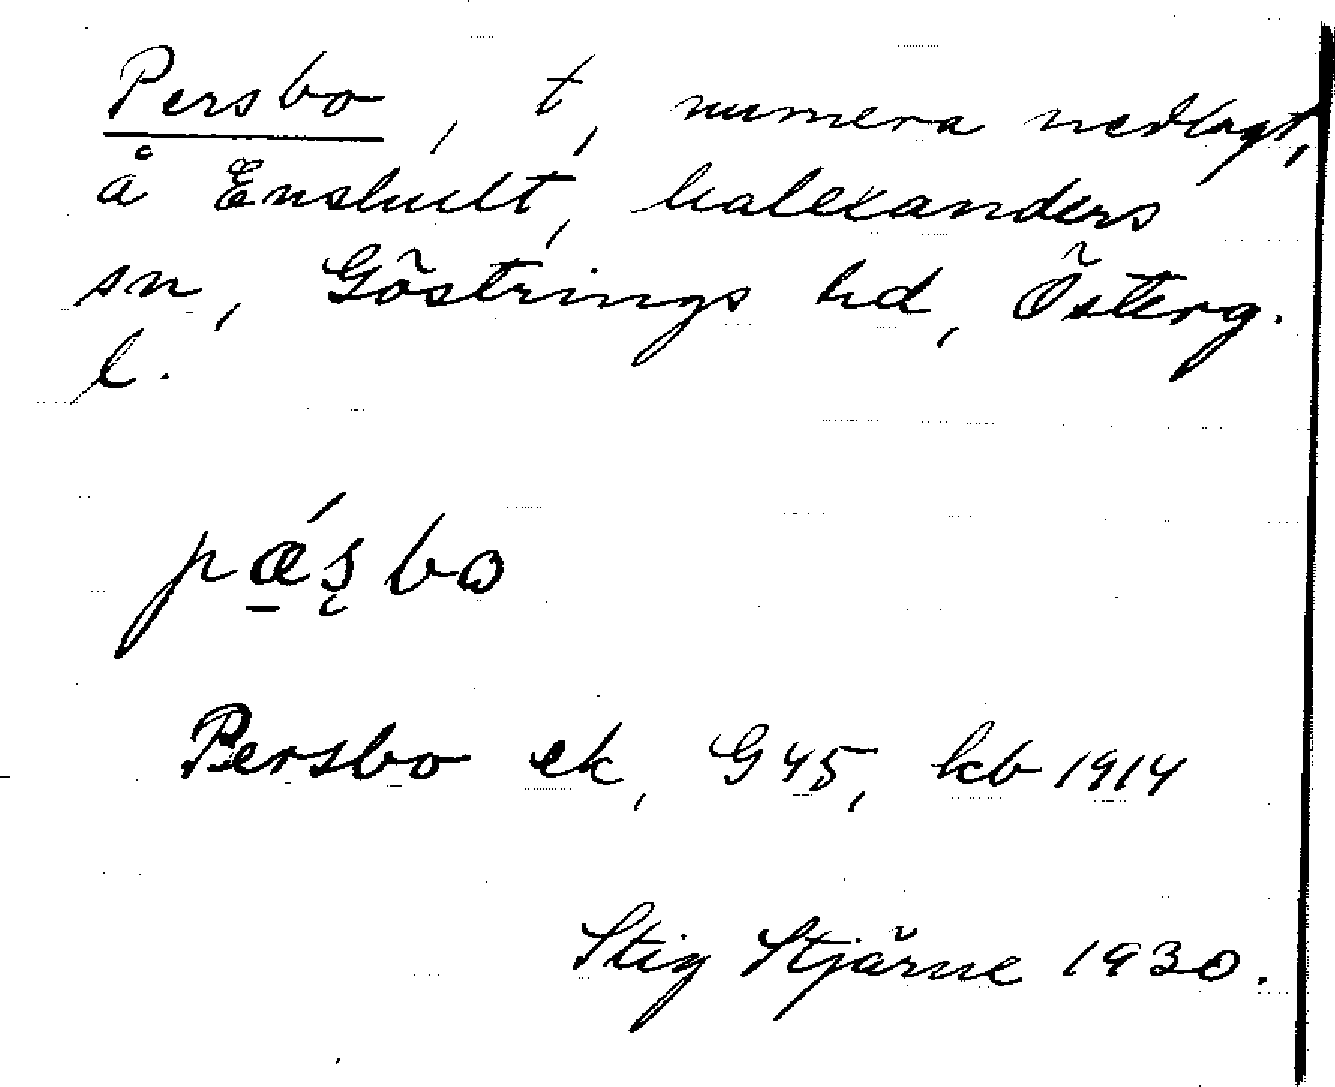 Persbo, t, numera nedlagt,
å Enshult, Malexanders
sn, Göstrings hd, Österg.
l.
pǽ̠s̨bo
Persbo ek, G45, kb 1914
Stig Stjärne 1930.